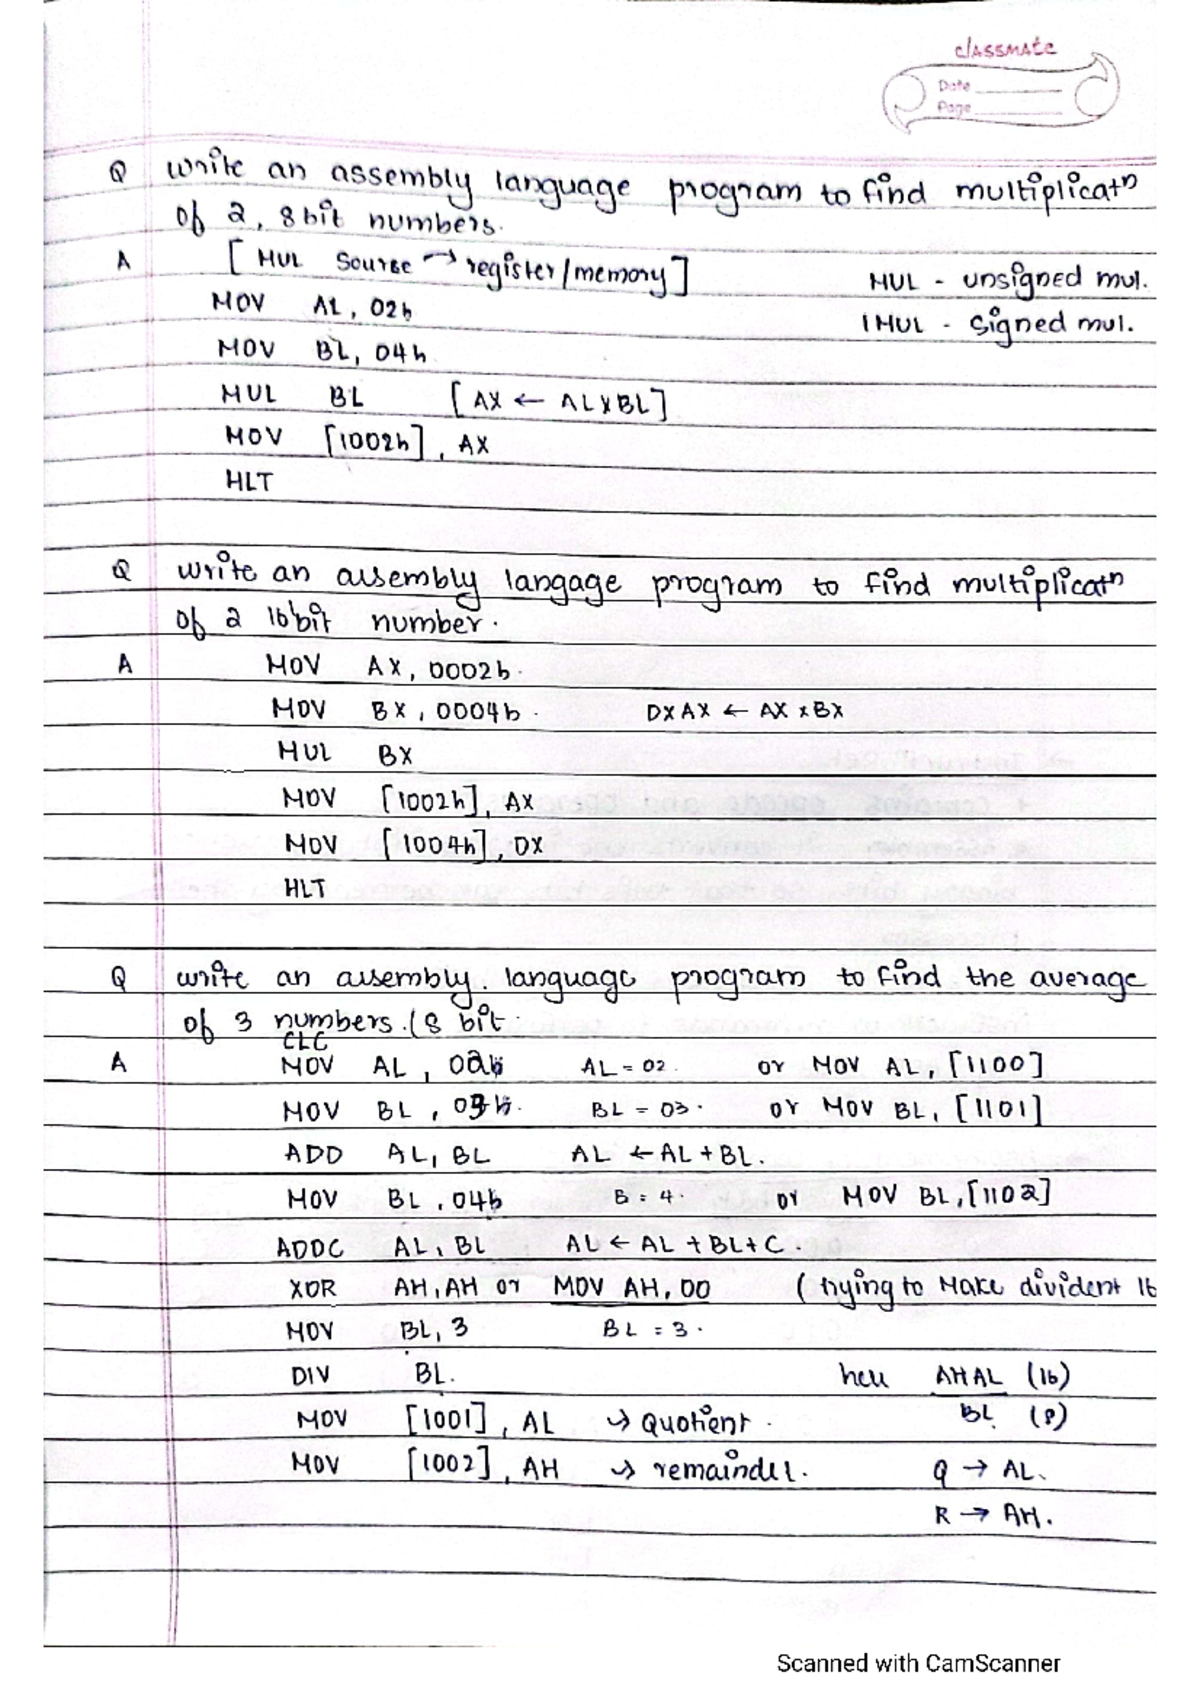 classmate
Date
Page
Q write an assembly language program to find multiplicatn
of 2, 8 bit numbers.
A [ MUL Source → register/memory ] MUL - unsigned mul.
MOV AL, 02h IMUL - Signed mul.
MOV BL, 04h
MUL BL [ AX ← AL x BL ]
MOV [1002h], AX
HLT
Q write an assembly langage program to find multiplicatn
of 2 16 bit number.
A MOV AX, 0002h.
MOV BX, 0004h. DXAX ← AX x BX
MUL BX
MOV [1002h], AX
MOV [1004h], DX
HLT
Q write an assembly. language program to find the average
of 3 numbers. (8 bit.
CLC
A MOV AL, 02h AL = 02. or MOV AL, [1100]
MOV BL, 03h. BL = 03. or MOV BL, [1101]
ADD AL, BL AL ← AL + BL.
MOV BL, 04h B = 4. or MOV BL, [1102]
ADDC AL, BL AL ← AL + BL + C.
XOR AH, AH or MOV AH, 00 ( trying to Make divident 16
MOV BL, 3 BL = 3.
DIV BL. here AHAL (16)
MOV [1001], AL → Quotient. BL (8)
MOV [1002], AH → remainder. Q → AL.
R → AH.
Scanned with CamScanner